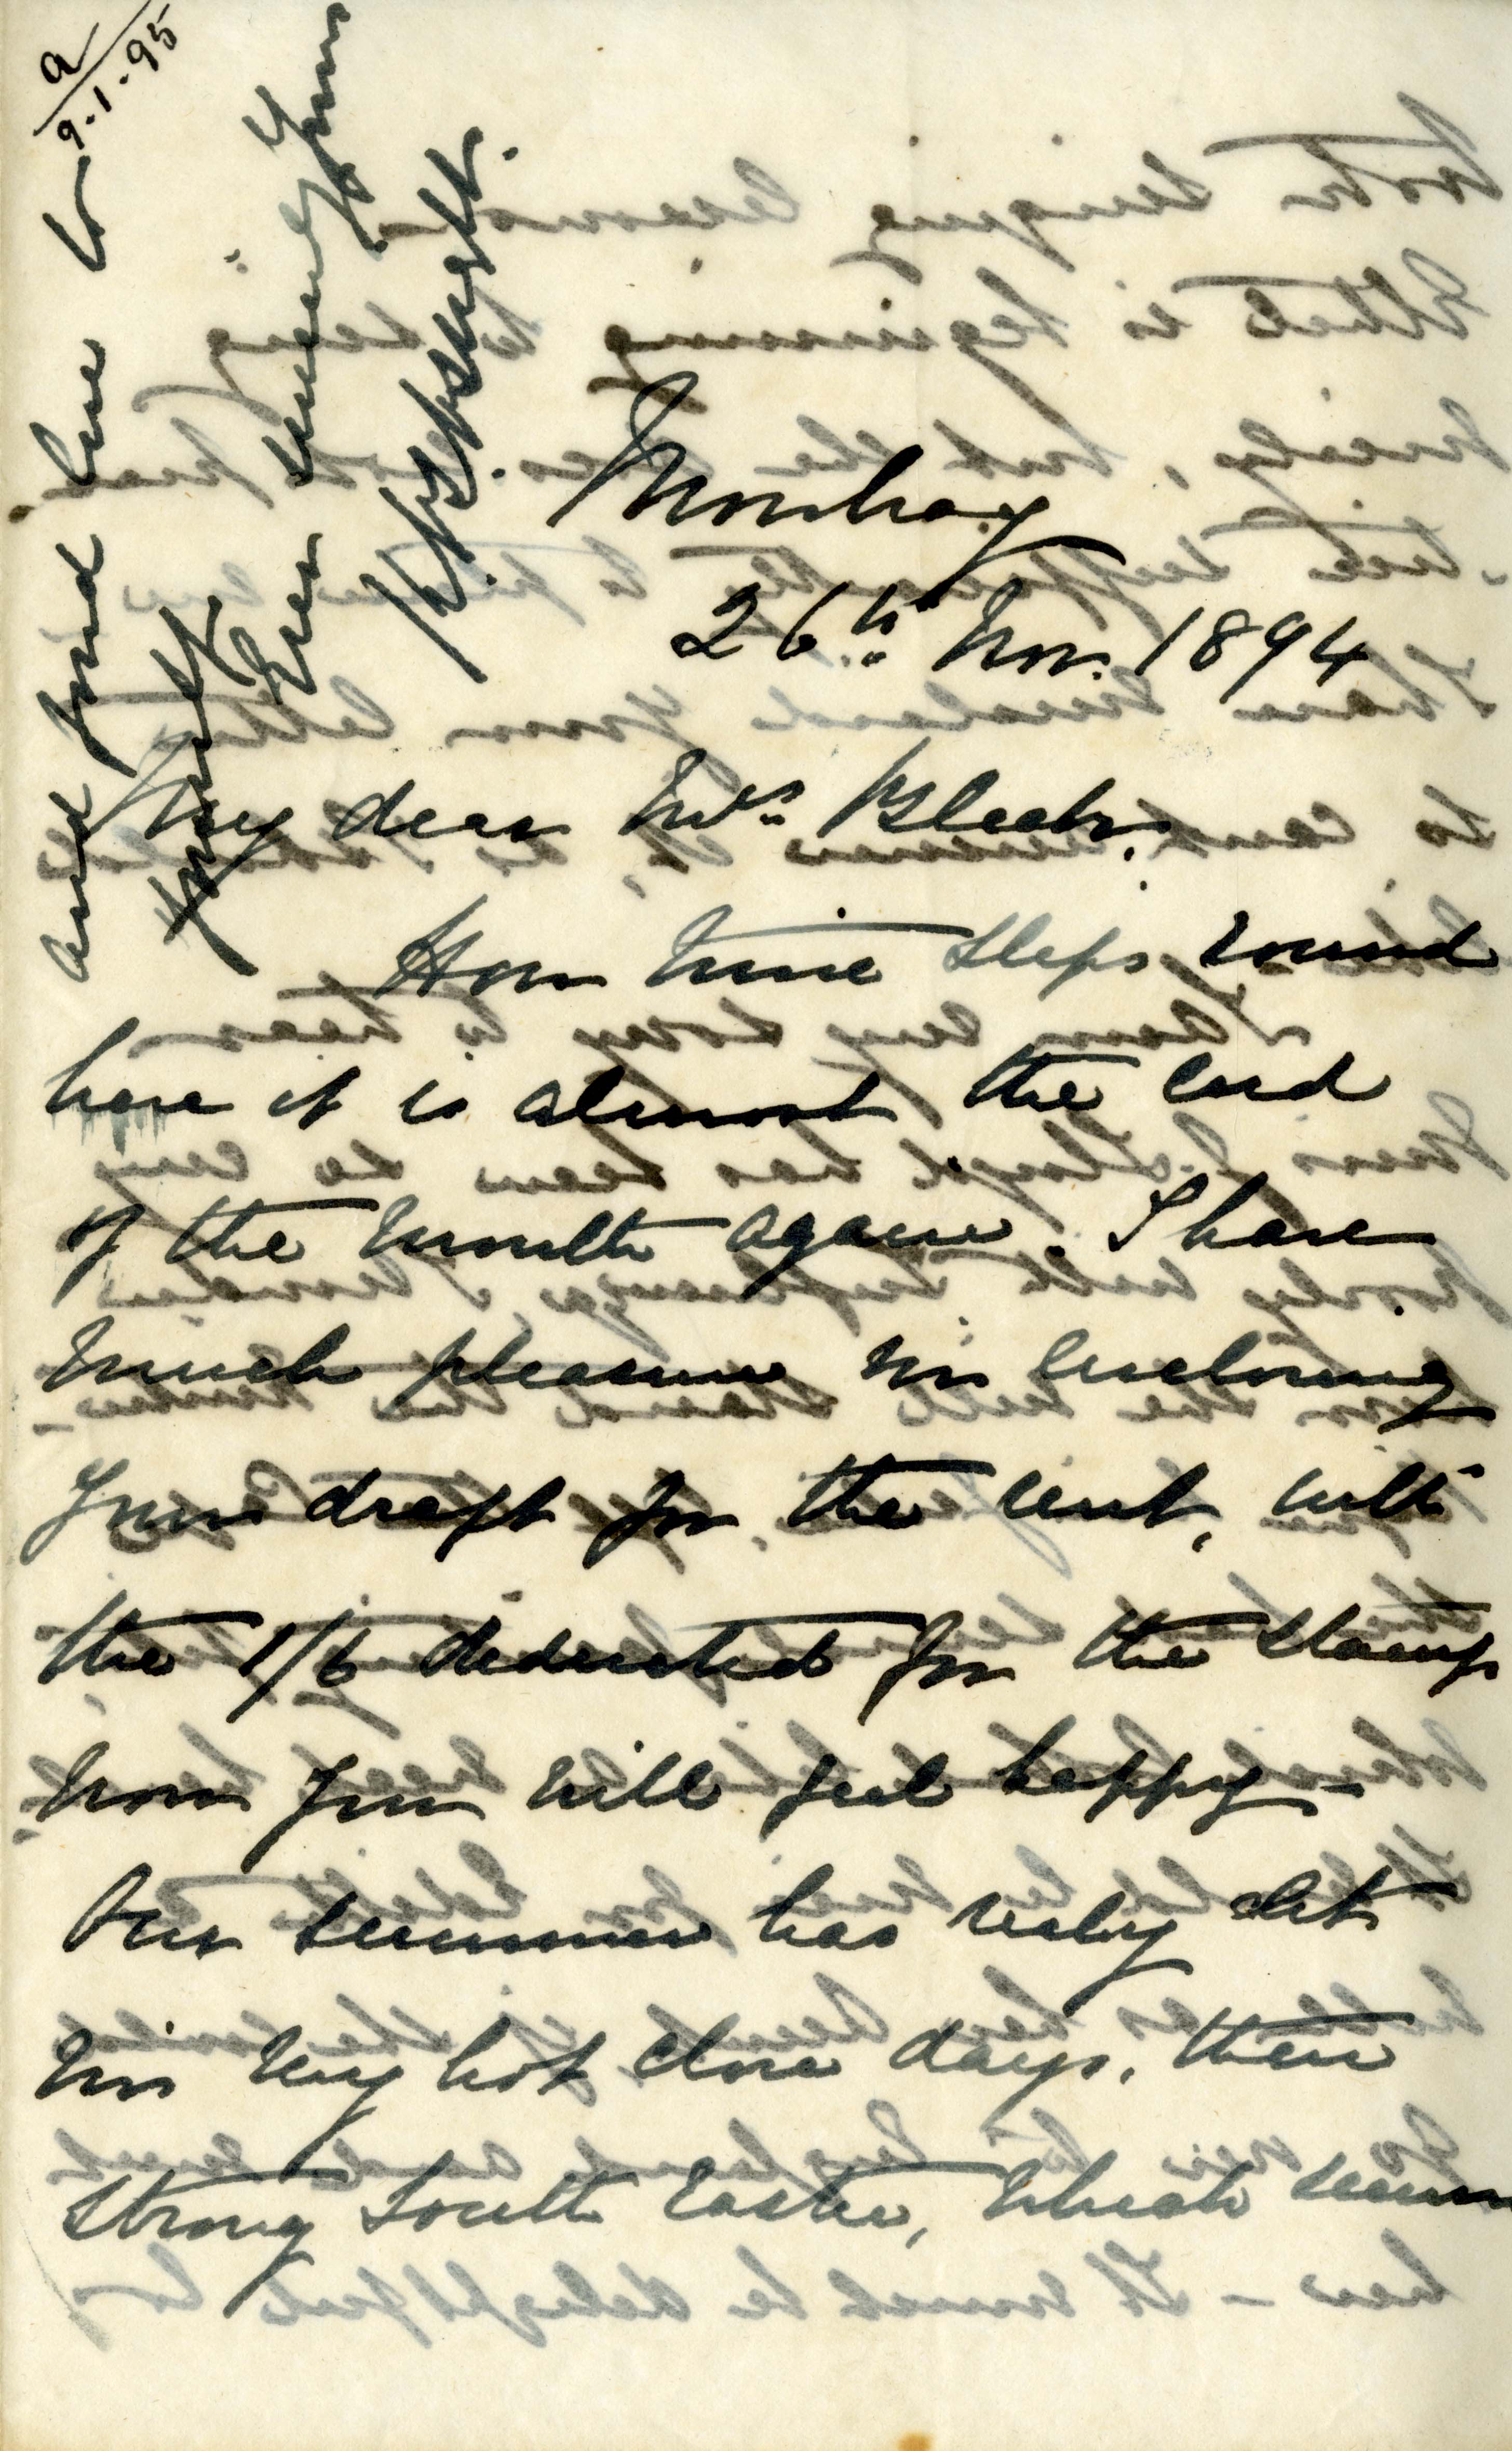 a
9.1.95
Monday
26th Nov. 1894
My dear Mrs Bleek,
How time slips round
here it is almost the end
of the month again. I have
much pleasure in enclosing
your draft for the rent, with
the 1/6 deducted for the stamp
now you will feel happy –
Our summer has really set
in very hot close days, then
strong South Easter, which seems
and fond love to
yourself
Ever sincerely yours